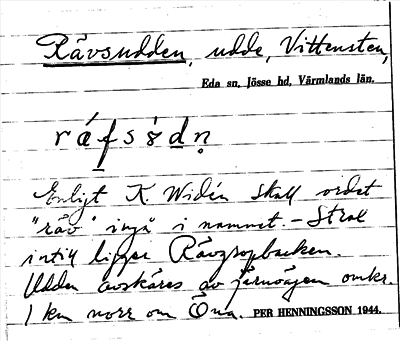 Rävsudden, udde, Vittensten,
Eda sn, Jösse hd, Värmlands län.
ráfsòdṇ
Enligt K. Widén skall ordet
"räv" ingå i namnet. - Strax
intill ligger Rävgropbacken.
Udden avskäres av järnvägen omkr.
1 km norr om Öna. PER HENNINGSSON 1944.